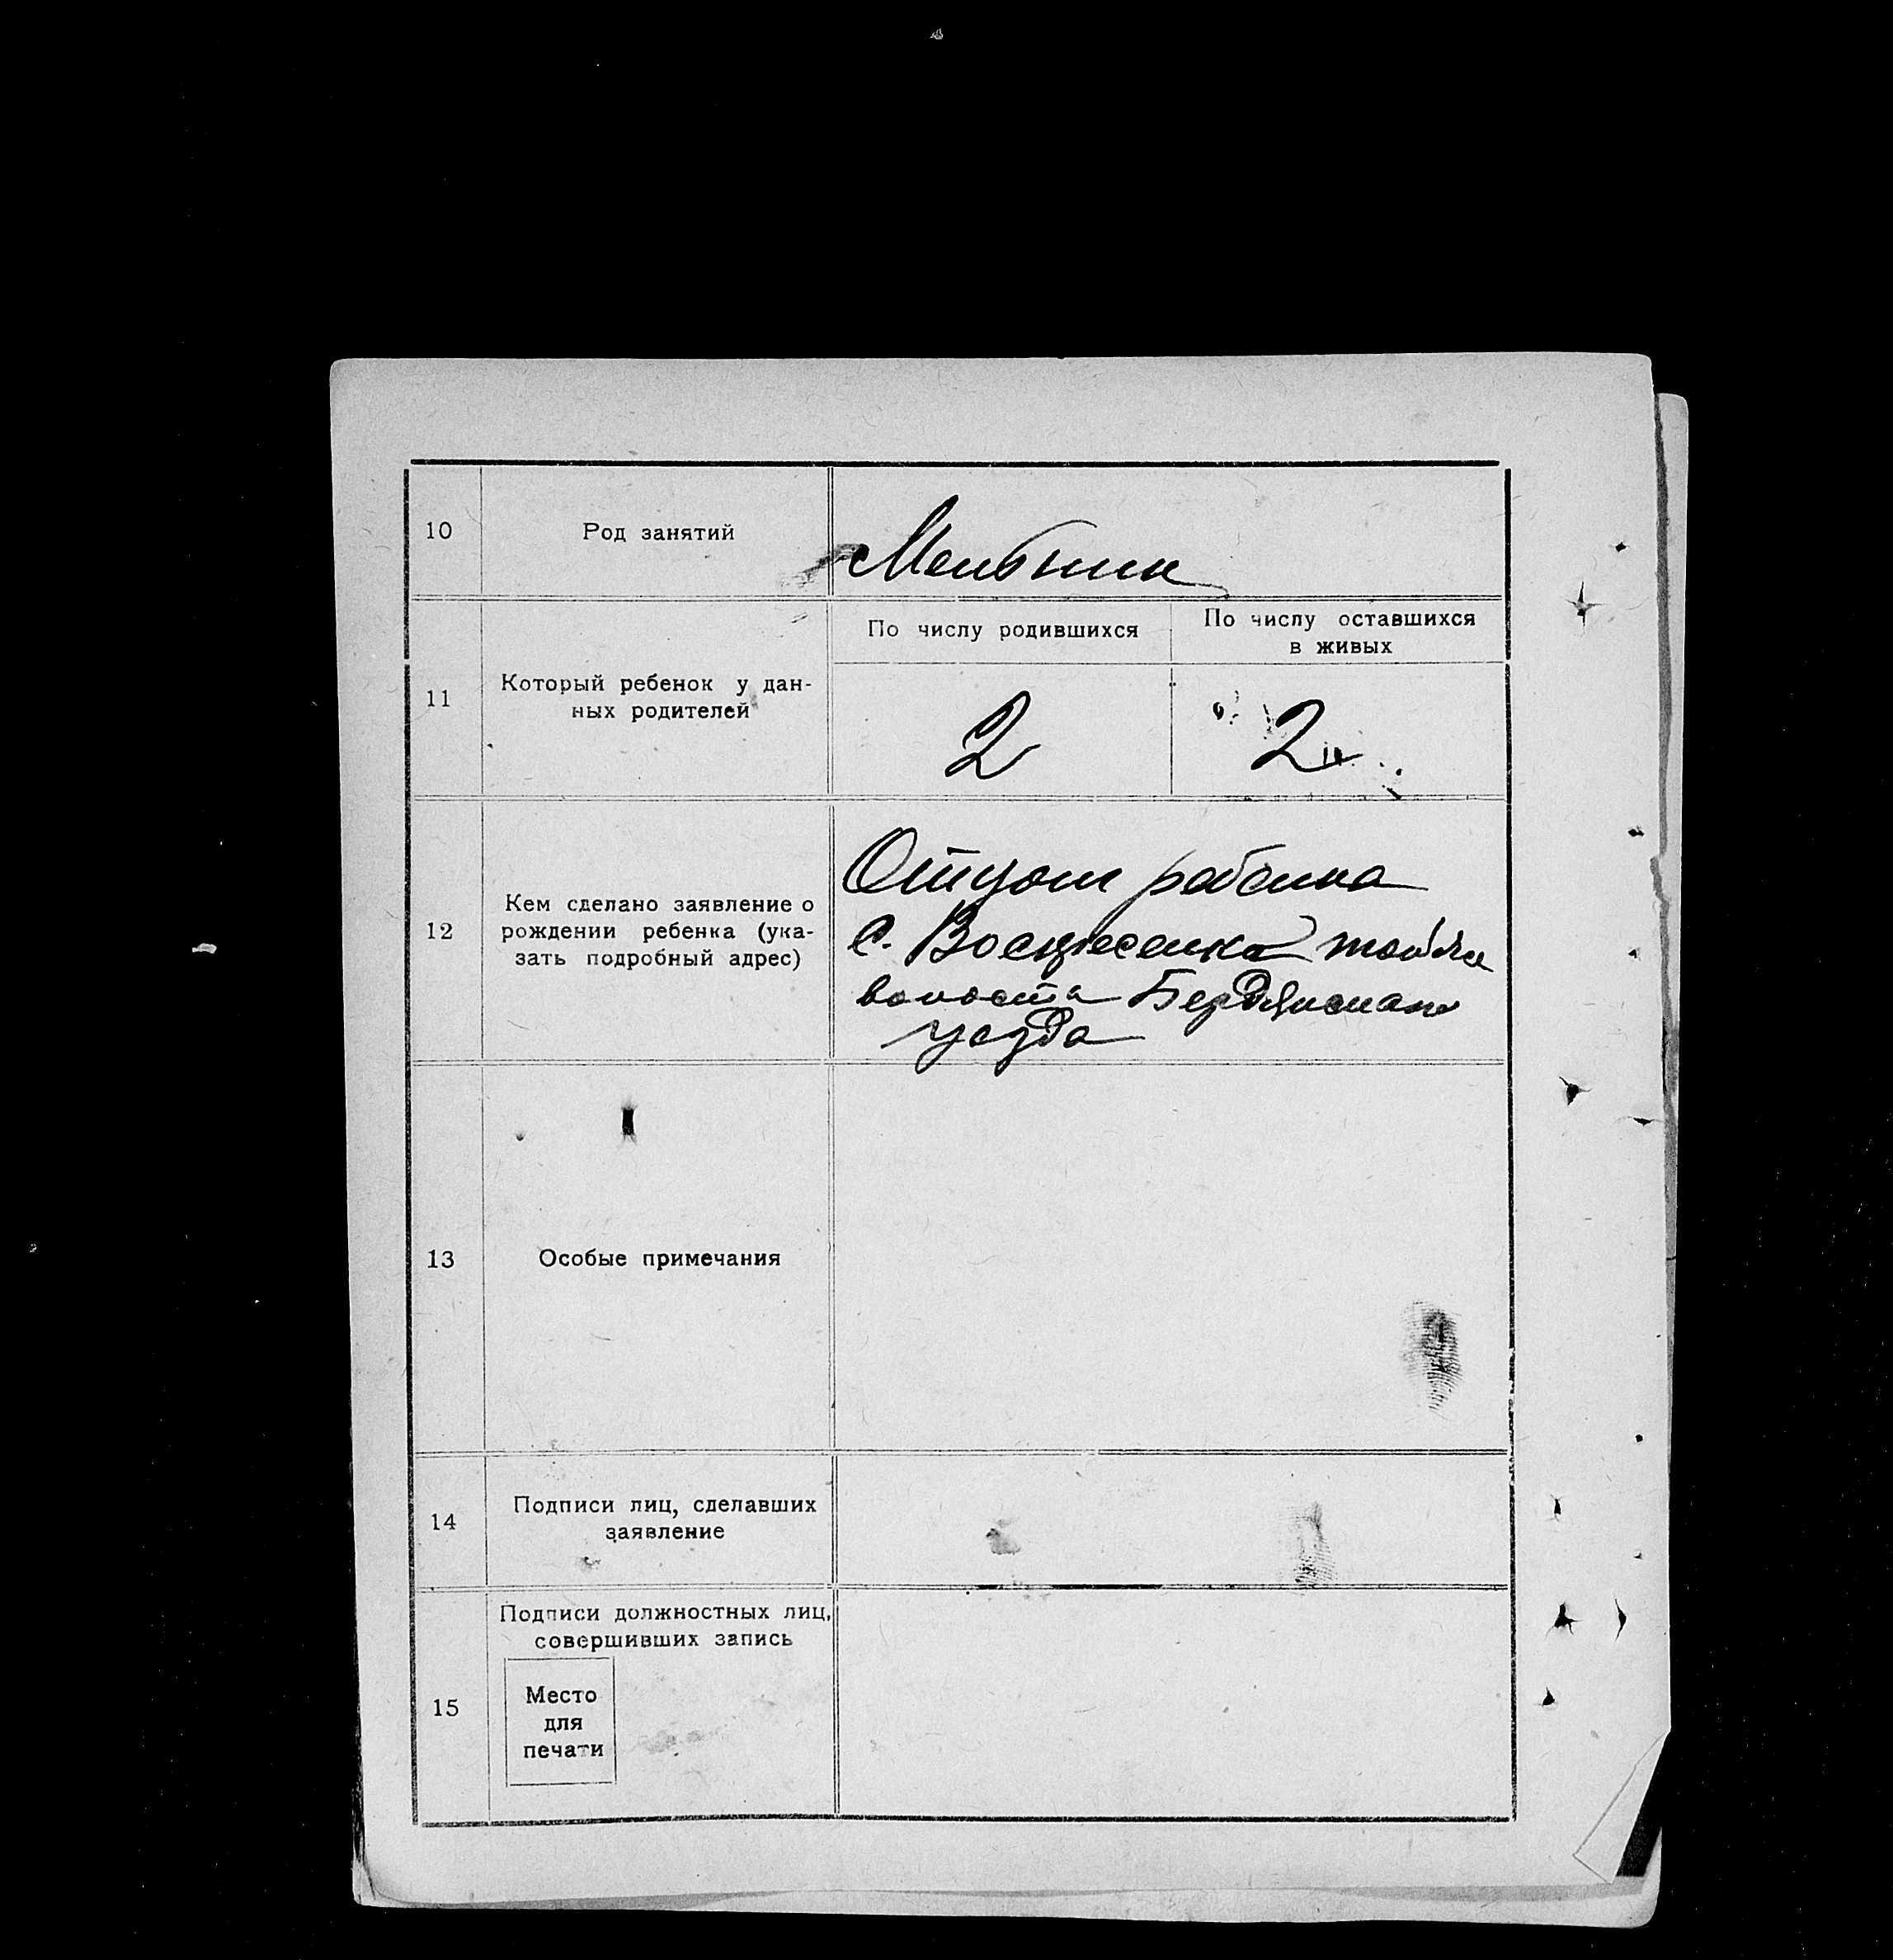 10
Род занятий
Мельник
11
Который ребенок у дан-
ных родителей
По числу родившихся
По числу оставшихся
в живых
2
2
12
Кем сделано заявление о
рождении ребенка (ука-
зать подробный адрес)
Отцом ребенка
с. Воскресенка той же
волости Бердянского
уезда
13
Особые примечания
14
Подписи лиц, сделавших
заявление
15
Подписи должностных лиц,
совершивших запись
Место
для
печати